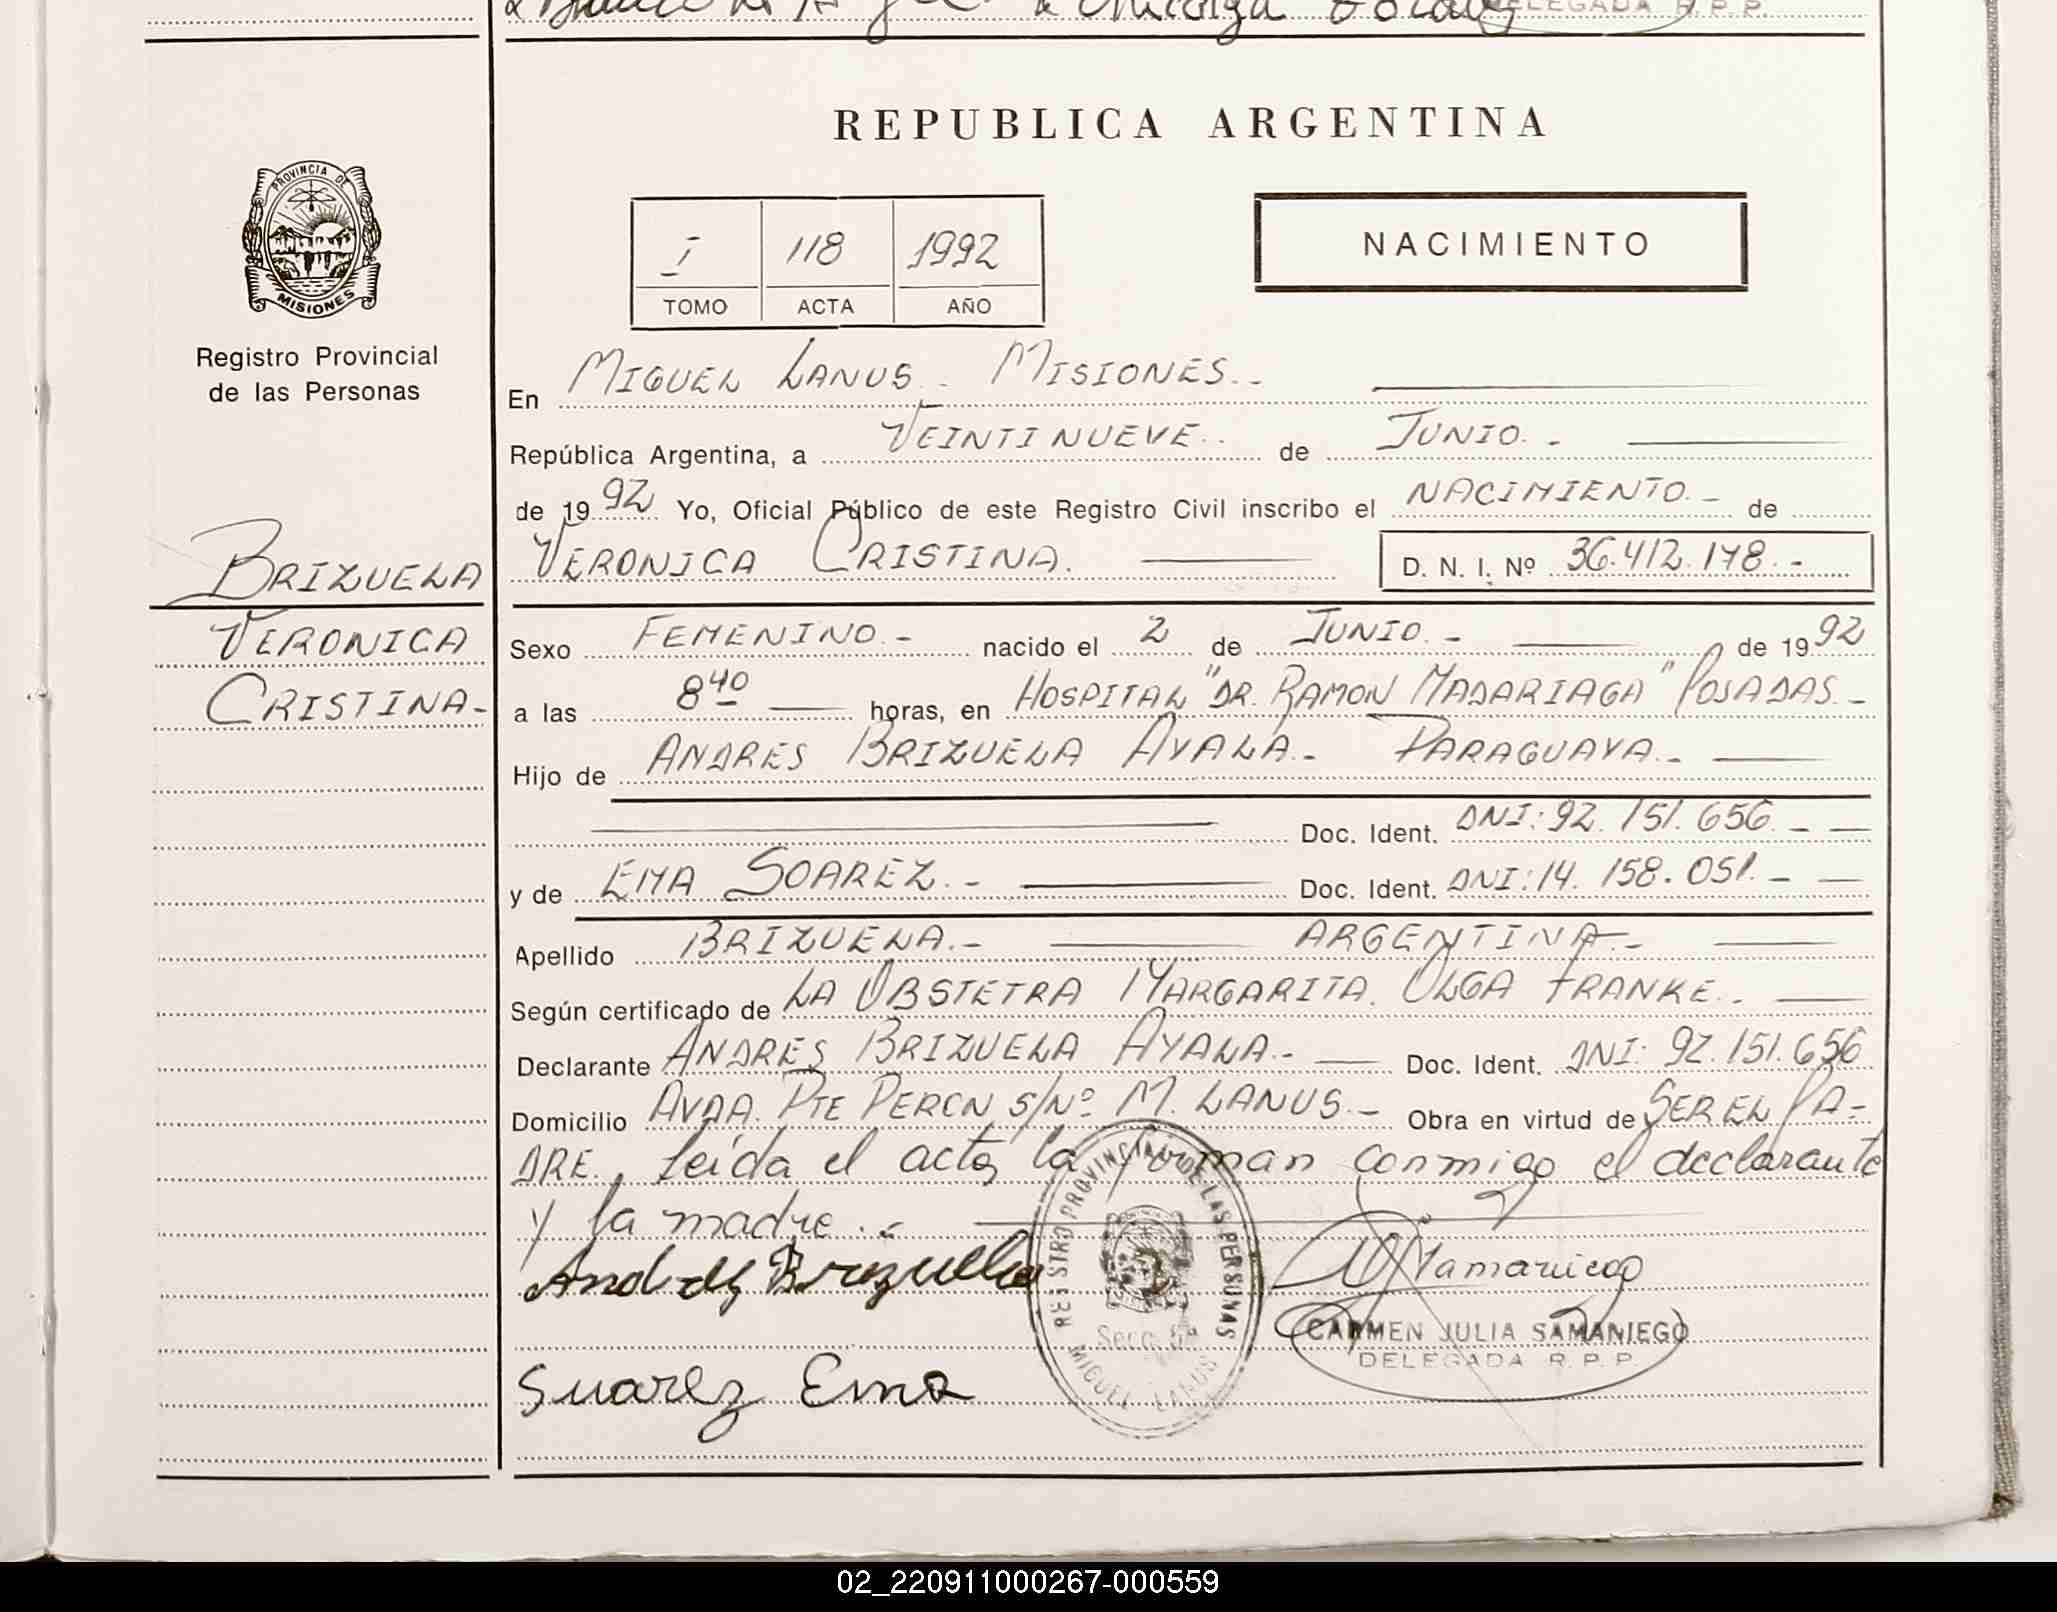 DELEGADA R.P.P.
REPUBLICA ARGENTINA
PROVINCIA DE
MISIONES
Registro Provincial
de las Personas
I 118 1992
TOMO ACTA AÑO
NACIMIENTO
En MIGUEL LANUS.. MISIONES.-
República Argentina, a VEINTINUEVE.. de JUNIO.-
de 1992 Yo, Oficial Público de este Registro Civil inscribo el NACIMIENTO.- de
BRIZUELA
VERONICA
CRISTINA-
VERONICA CRISTINA. D. N. I. Nº 36.412.178.-
Sexo FEMENINO.- nacido el 2 de JUNIO.- de 1992
a las 8 40 horas, en HOSPITAL "DR. RAMON MADARIAGA" POSADAS.-
Hijo de ANDRES BRIZUELA AYALA.- PARAGUAYA.-
Doc. Ident. DNI: 92.151.656.-
y de EMA SOAREZ.- Doc. Ident. DNI: 14.158.051.-
Apellido BRIZUELA.- ARGENTINA.-
Según certificado de LA OBSTETRA MARGARITA OLGA FRANKE.-
Declarante ANDRES BRIZUELA AYALA.- Doc. Ident. DNI: 92.151.656
Domicilio AVDA. PTE PERON S/Nº M. LANUS.- Obra en virtud de SER EL PA-
DRE. Leída el acta, la firman conmigo el declarante
y la madre.-
Andres Brizuela
Samaniego
REGISTRO PROVINCIAL DE LAS PERSONAS
Secc. 5ª
MIGUEL LANUS
CARMEN JULIA SAMANIEGO
DELEGADA R.P.P.
Suarez Ema
02_220911000267-000559